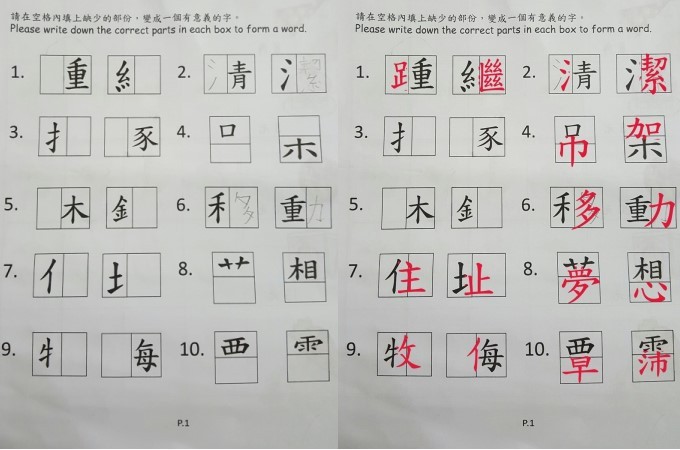 請在空格內填上缺少的部份，變成一個有意義的字。
Please write down the correct parts in each box to form a word.
1. 重 糹 2. 清 氵
3. 扌 豕 4. 口 木
5. 木 釒 6. 移 動
7. 亻 土 8. 艹 相
9. 牜 每 10. 覀 雨
P.1
請在空格內填上缺少的部份，變成一個有意義的字。
Please write down the correct parts in each box to form a word.
1. 踵 繼 2. 清 潔
3. 扌 豕 4. 吊 架
5. 木 釒 6. 移 動
7. 住 址 8. 夢 想
9. 牧 侮 10. 覃 霈
P.1